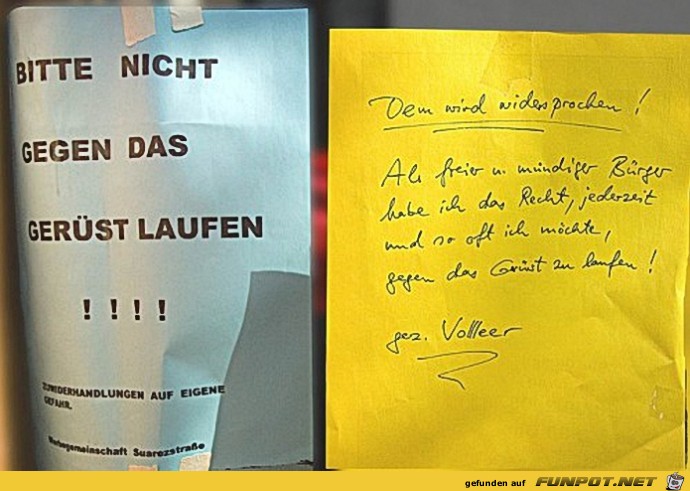 BITTE NICHT
GEGEN DAS
GERÜST LAUFEN
! ! ! !
ZUWIDERHANDLUNGEN AUF EIGENE
GEFAHR.
Werbegemeinschaft Suarezstraße
Dem wird widersprochen!
Als freier u. mündiger Bürger
habe ich das Recht, jederzeit
und so oft ich möchte,
gegen das Gerüst zu laufen!
gez. Vollleer
gefunden auf FUNPOT.NET